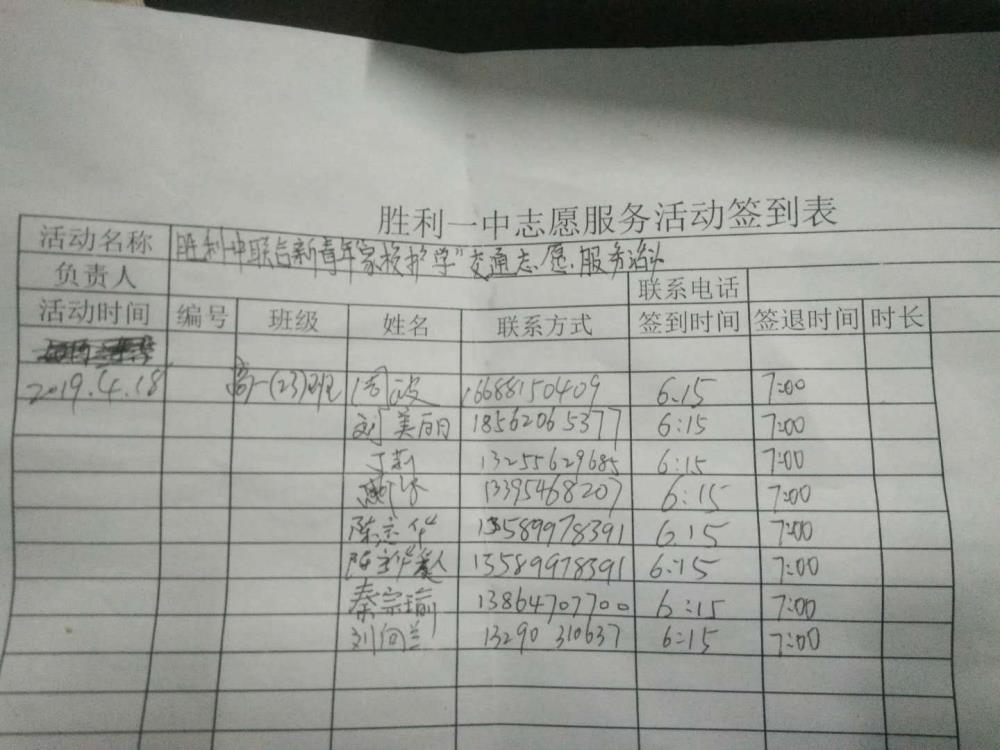 胜利一中志愿服务活动签到表
活动名称 胜利一中联合新青年"家校护学"交通志愿服务
负责人 联系电话
活动时间 编号 班级 姓名 联系方式 签到时间 签退时间 时长
2019.4.18 高一(23)班 周波 16688150409 6:15 7:00
刘美丽 18562065377 6:15 7:00
丁莉 13255629685 6:15 7:00
13395468207 6:15 7:00
陈志华 13589978391 6:15 7:00
陈志华 13589978391 6:15 7:00
秦宗瑜 13864707700 6:15 7:00
刘向兰 13290310637 6:15 7:00